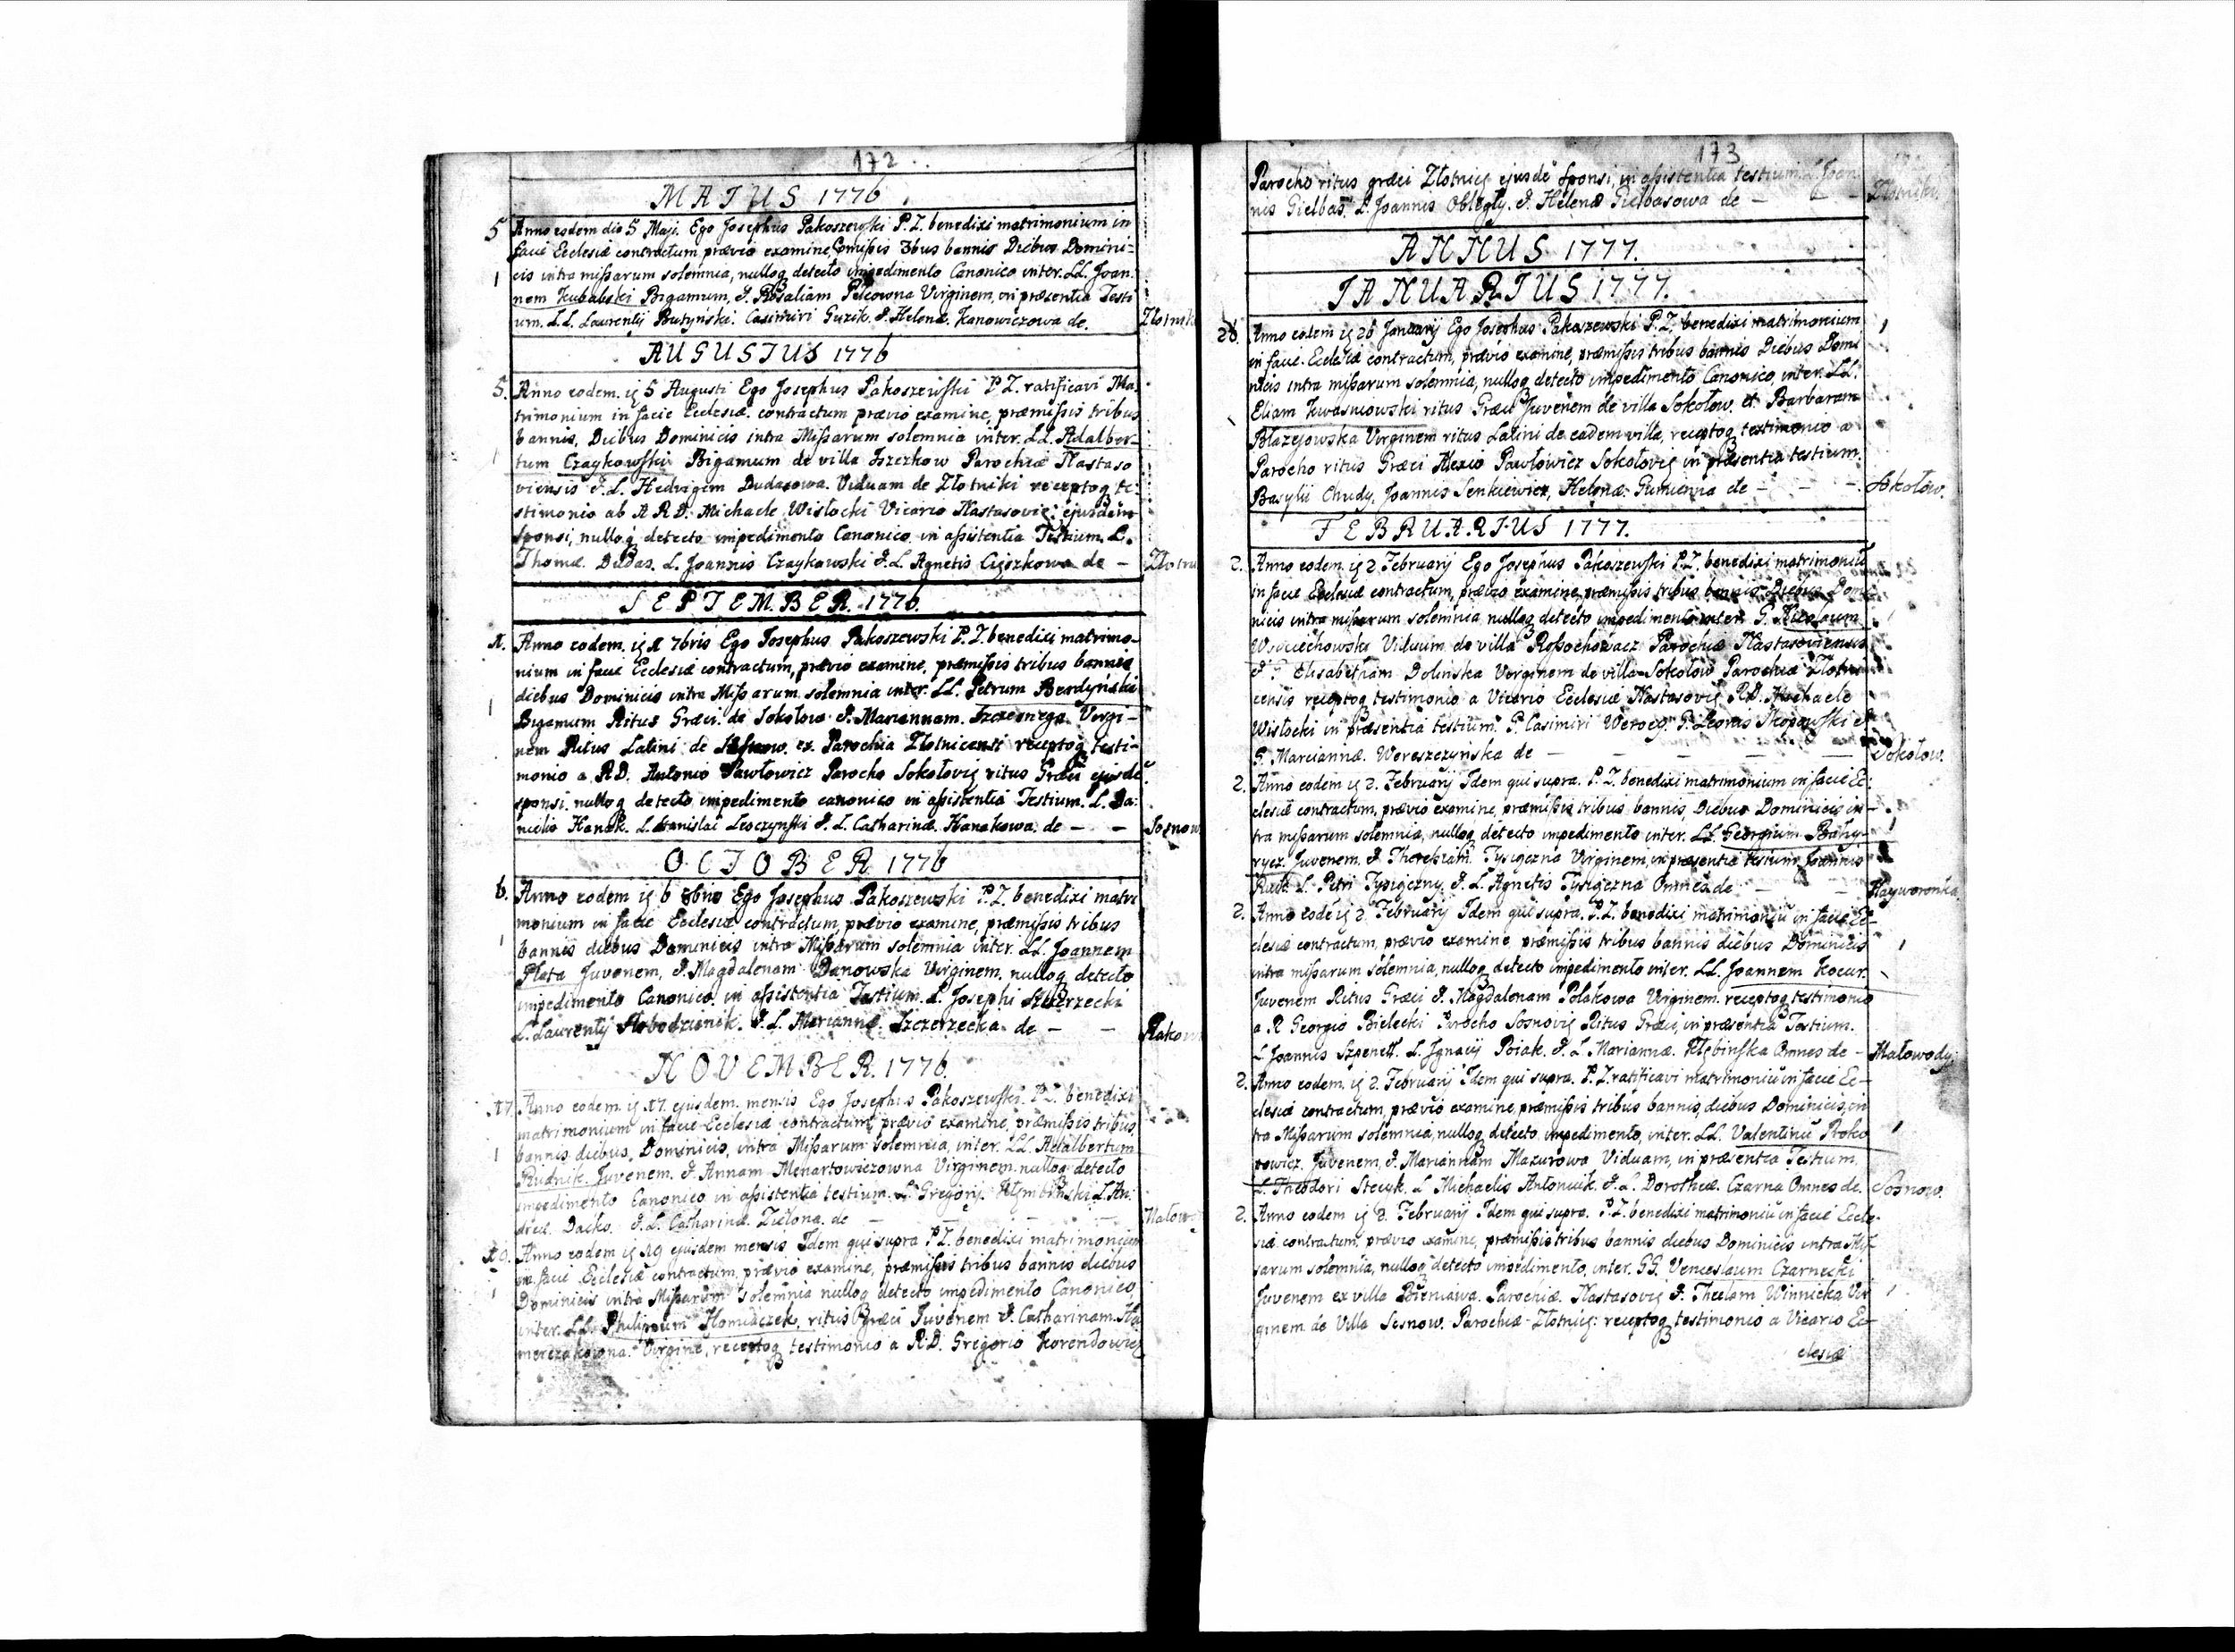 172
MAJUS 1776
5 Anno eodem die 5 Maji. Ego Josephus Pakoszewski P.Z. benedixi matrimonium in
facie Ecclesiæ contractum prævio examine, præmissis 3bus bannis Diebus Domini-
cis intra missarum solemnia, nulloq detecto impedimento Canonico inter. LL. Joan-
nem Kubalski Bigamum, & Rosaliam Virginem, in præsentia Testi
um. L.L. Laurentÿ Butyński. Casimiri Guzik. & Helenæ. Janowiczowa de. Złotnik
AUGUSTUS 1776
5. Anno eodem. 5 Augusti Ego Josephus Pakoszewski P Z. ratificavi Ma-
trimonium in facie Ecclesiæ. contractum prævio examine, præmissis tribus
bannis, Diebus Dominicis intra Missarum solemnia inter. LL. Adalber-
tum Czaykowski Bigamum de villa Iszczkow Parochiæ Nastaso
viensis & L. Hedvigem Dudasowa. Viduam de Złotniki receptoq te-
stimonio ab A R D. Michaele Wisłocki Vicario Nastasovie: ejusdem
sponsi, nulloq detecto impedimento Canonico, in assistentia Testium. L.
Thomæ. Dudas. L. Joannis Czaykowski & L Agnetis Cięszkowa de - Złotni
SEPTEMBER. 1776.
Anno eodem. 7bris Ego Josephus Pakoszewski P.Z. benedixi matrimo-
nium in facie Ecclesiæ contractum, prævio examine, præmissis tribus bannis
diebus Dominicis intra Missarum solemnia inter. LL. Petrum Berdyński
Bigamum Ritus Græci. de Sokołow & Mariannam. Virgi-
nem Ritus Latini de ex Parochia Złotnicensi receptoq testi-
monio a. R.D. Antonio Pawłowicz Parocho Sokołovie ritus Græci ejusde
sponsi. nulloq detecto impedimento canonico in assistentia Testium. L. Da-
nielis Hanek. L. Stanislai Leszczynski & L. Catharinæ. Hanakowa. de - - Sosnow
OCTOBER 1776
6. Anno eodem 6 8bris Ego Josephus Pakoszewski P.Z. benedixi matri
monium in facie Ecclesiæ contractum prævio examine, præmissis tribus
bannis diebus Dominicis intra Missarum solemnia inter. LL. Joannem
Plata Juvenem, & Magdalenam Danowska Virginem, nulloq detecto
impedimento Canonico. in assistentia Testium. L. Josephi Szczerzecki
L. Laurentÿ Słobodzianik. & L. Mariannæ. Szczerzecka de - - Rakow
NOVEMBER. 1776.
17 Anno eodem. 17 ejusdem. mensis Ego Josephus Pakoszewski. P.Z. benedixi
matrimonium in facie Ecclesiæ contractum, prævio examine, præmissis tribus
bannis diebus, Dominicis, intra Missarum solemnia, inter. LL. Adalbertum
Rudnik. Juvenem, & Annam Menartowiczowna Virginem. nulloq detecto
impedimento Canonico in assistentia testium. L. Gregorÿ. L. An-
dreæ. Dacko. & L. Catharinæ. Zielona. de - Małow
19. Anno eodem 19 ejusdem mensis Idem qui supra P.Z. benedixi matrimonium
in facie Ecclesiæ contractum, prævio examine, præmissis tribus bannis diebus
Dominicis intra Missarum solemnia nulloq detecto impedimento Canonico,
inter. LL. Philippum Homuiczek, ritus Græci Juvenem & Catharinam. Ha
merczakowna. Virgine, receptoq testimonio a R.D. Gregorio Korendowicz
173
Parocho ritus græci Złotnicę ejusde Sponsi, in assistentia testium. L. Joan-
nis Gielbas. L. Joannis Obległy. & Helenæ Gielbasowa de - - - Złotniki.
ANNUS 1777.
JANUARIUS 1777.
26. Anno eodem 26 Januarÿ Ego Josephus Pakoszewski P.Z. benedixi matrimonium
in facie. Ecclesiæ contractum, prævio examine, præmissis tribus bannis Diebus Domi
nicis intra missarum solemnia, nulloq detecto impedimento Canonico, inter. LL.
Eliam Kwasniowski ritus Græci Juvenem de villa Sokołow. et Barbaram
Błazejowska Virginem ritus Latini de eadem villa, receptoq testimonio a
Parocho ritus Græci Alexio Pawłowicz Sokołovie in præsentia testium.
Basylii Chudy, Joannis Senkiewicz, Helenæ. Gumienna de - - -. Sokołow.
FEBRUARIUS 1777.
2. Anno eodem. 2 Februarÿ Ego Josephus Pakoszewski P.Z. benedixi matrimoniũ
in facie Ecclesiæ contractum, prævio examine, præmissis tribus bannis Diebus Domi
nicis intra missarum solemnia nulloq detecto impedimento inter. G. Nicolaum
Woyciechowski Viduum de villa Rosochowacz Parochiæ Nastasoviensis
& G. Elisabetham Dolinska Virginem de villa Sokołow Parochiæ Złotni
censis receptoq testimonio a Vicario Ecclesiæ Nastasovie R.D. Michaele
Wisłocki in præsentia testium. G. Casimiri G. Leonis et
G. Mariannæ. Wereszczynska de - - - - Sokołow.
2. Anno eodem 2. Februarÿ Idem qui supra. P.Z. benedixi matrimonium in facie Ec-
clesiæ contractum, prævio examine, præmissis tribus bannis, Diebus Dominicis in-
tra missarum solemnia, nulloq detecto impedimento inter. LL. Georgium
rycz. Juvenem, & Theresiam. Tysięczna Virginem, in præsentia testium, Joannis
L. Petri Tysięczny. & L. Agnetis Tysięczna Omnes de - - Hayworonka.
2. Anno eode 2. Februarÿ Idem qui supra. P.Z. benedixi matrimoniũ in facie Ec-
clesiæ contractum, prævio examine, præmissis tribus bannis diebus Dominicis
intra missarum solemnia, nulloq detecto impedimento inter. LL. Joannem Kocur.
Juvenem Ritus Græci & Magdalenam Polakowa Virginem. receptoq testimonio
a R Georgio Bielecki Parocho Sosnovię Ritus Græci, in præsentia Testium.
L Joannis L. Ignacÿ Poiak. & L Mariannæ. Omnes de - Małowody
2. Anno eodem. 2. Februarÿ Idem qui supra. P.Z. ratificavi matrimoniũ in facie Ec-
clesiæ contractum, prævio examine, præmissis tribus bannis, diebus Dominicis, in
tra Missarum solemnia, nulloq detecto impedimento, inter. LL. Valentinũ Roko
towicz. Juvenem, & Mariannam Mazurowa Viduam, in præsentia Testium.
L. Theodori Stecyk. L Michaelis Antoniuk. & L. Dorotheæ. Czarna Omnes de. Sosnow.
2. Anno eodem 2. Februarÿ Idem qui supra. P.Z. benedixi matrimoniũ in facie Eccle-
siæ contractum, prævio examine, præmissis tribus bannis diebus Dominicis intra Mis-
sarum solemnia, nulloq detecto impedimento, inter. GG. Venceslaum Czarnecki
Juvenem ex villa Bieniawa. Parochiæ. Nastasovię & Theclam Winnicka Vir
ginem de Villa Sosnow. Parochiæ Złotnicę: receptoq testimonio a Vicario Ec-
clesiæ